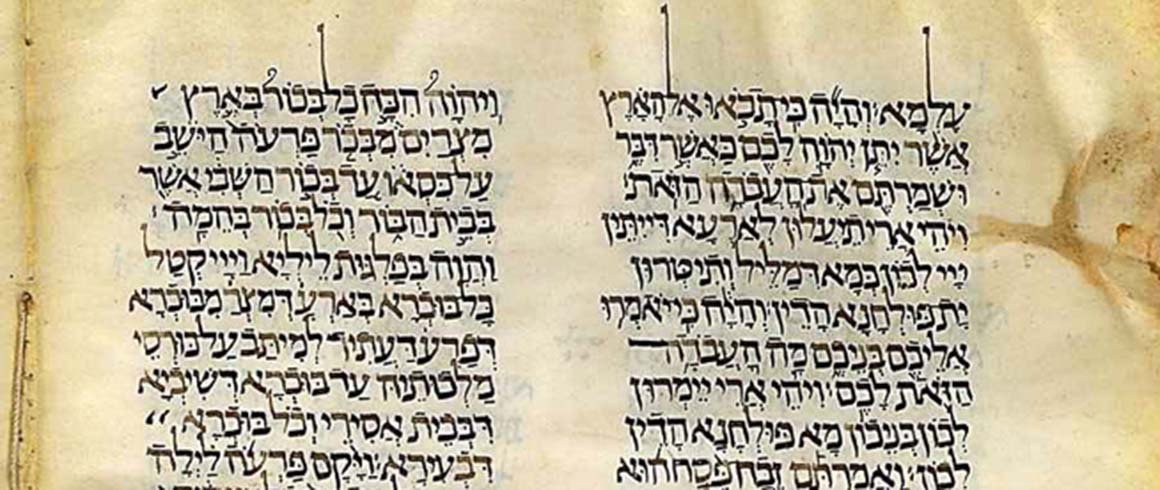 עלמא והיה כי תבאו אל הארץ
אשר יתן יהוה לכם כאשר דבר
ושמרתם את העבדה הזאת
ויהי ארי תיעלון לארעא דייתין
ייי לכון כמא דמליל ותיטרון
ית פולחנא הדין והיה כי יאמרו
אליכם בניכם מה העבדה
הזאת לכם ויהי ארי יימרון
לכון בניכון מא פולחנא הדין
לכון ואמרתם זבח פסח הוא
ויהוה הכה כל בכור בארץ
מצרים מבכר פרעה הישב
על כסאו עד בכור השבי אשר
בבית הבור וכל בכור בהמה
והוה בפלגות ליליא וייי קטל
כל בוכרא בארע דמצר מבוכרא
דפרעה דעתיד למיתב על כורסי
מלכותיה עד בוכרא דשיביא
דבבית אסירי וכל בוכרא
דבעירא ויקם פרעה לילה